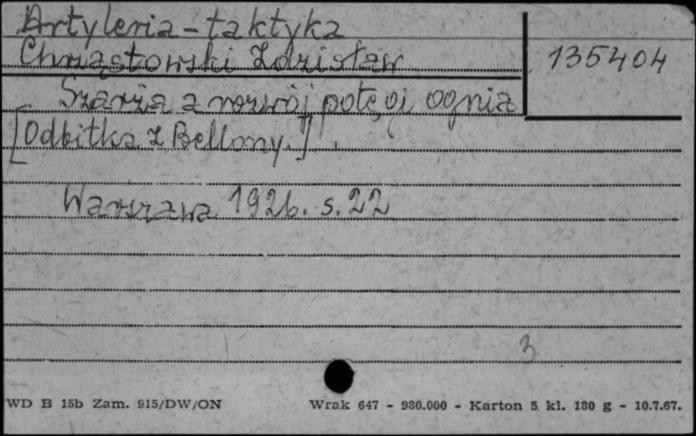 Artyleria - taktyka
Chrząstowski Zdzisław
135404
Szarża a rozwój potęgi ognia
[Odbitka z Bellony.]
Warszawa 1926. s. 22
3
WD B 15b Zam. 915/DW/ON
Wrak 647 - 930.000 - Karton 5 kl. 180 g - 10.7.67.